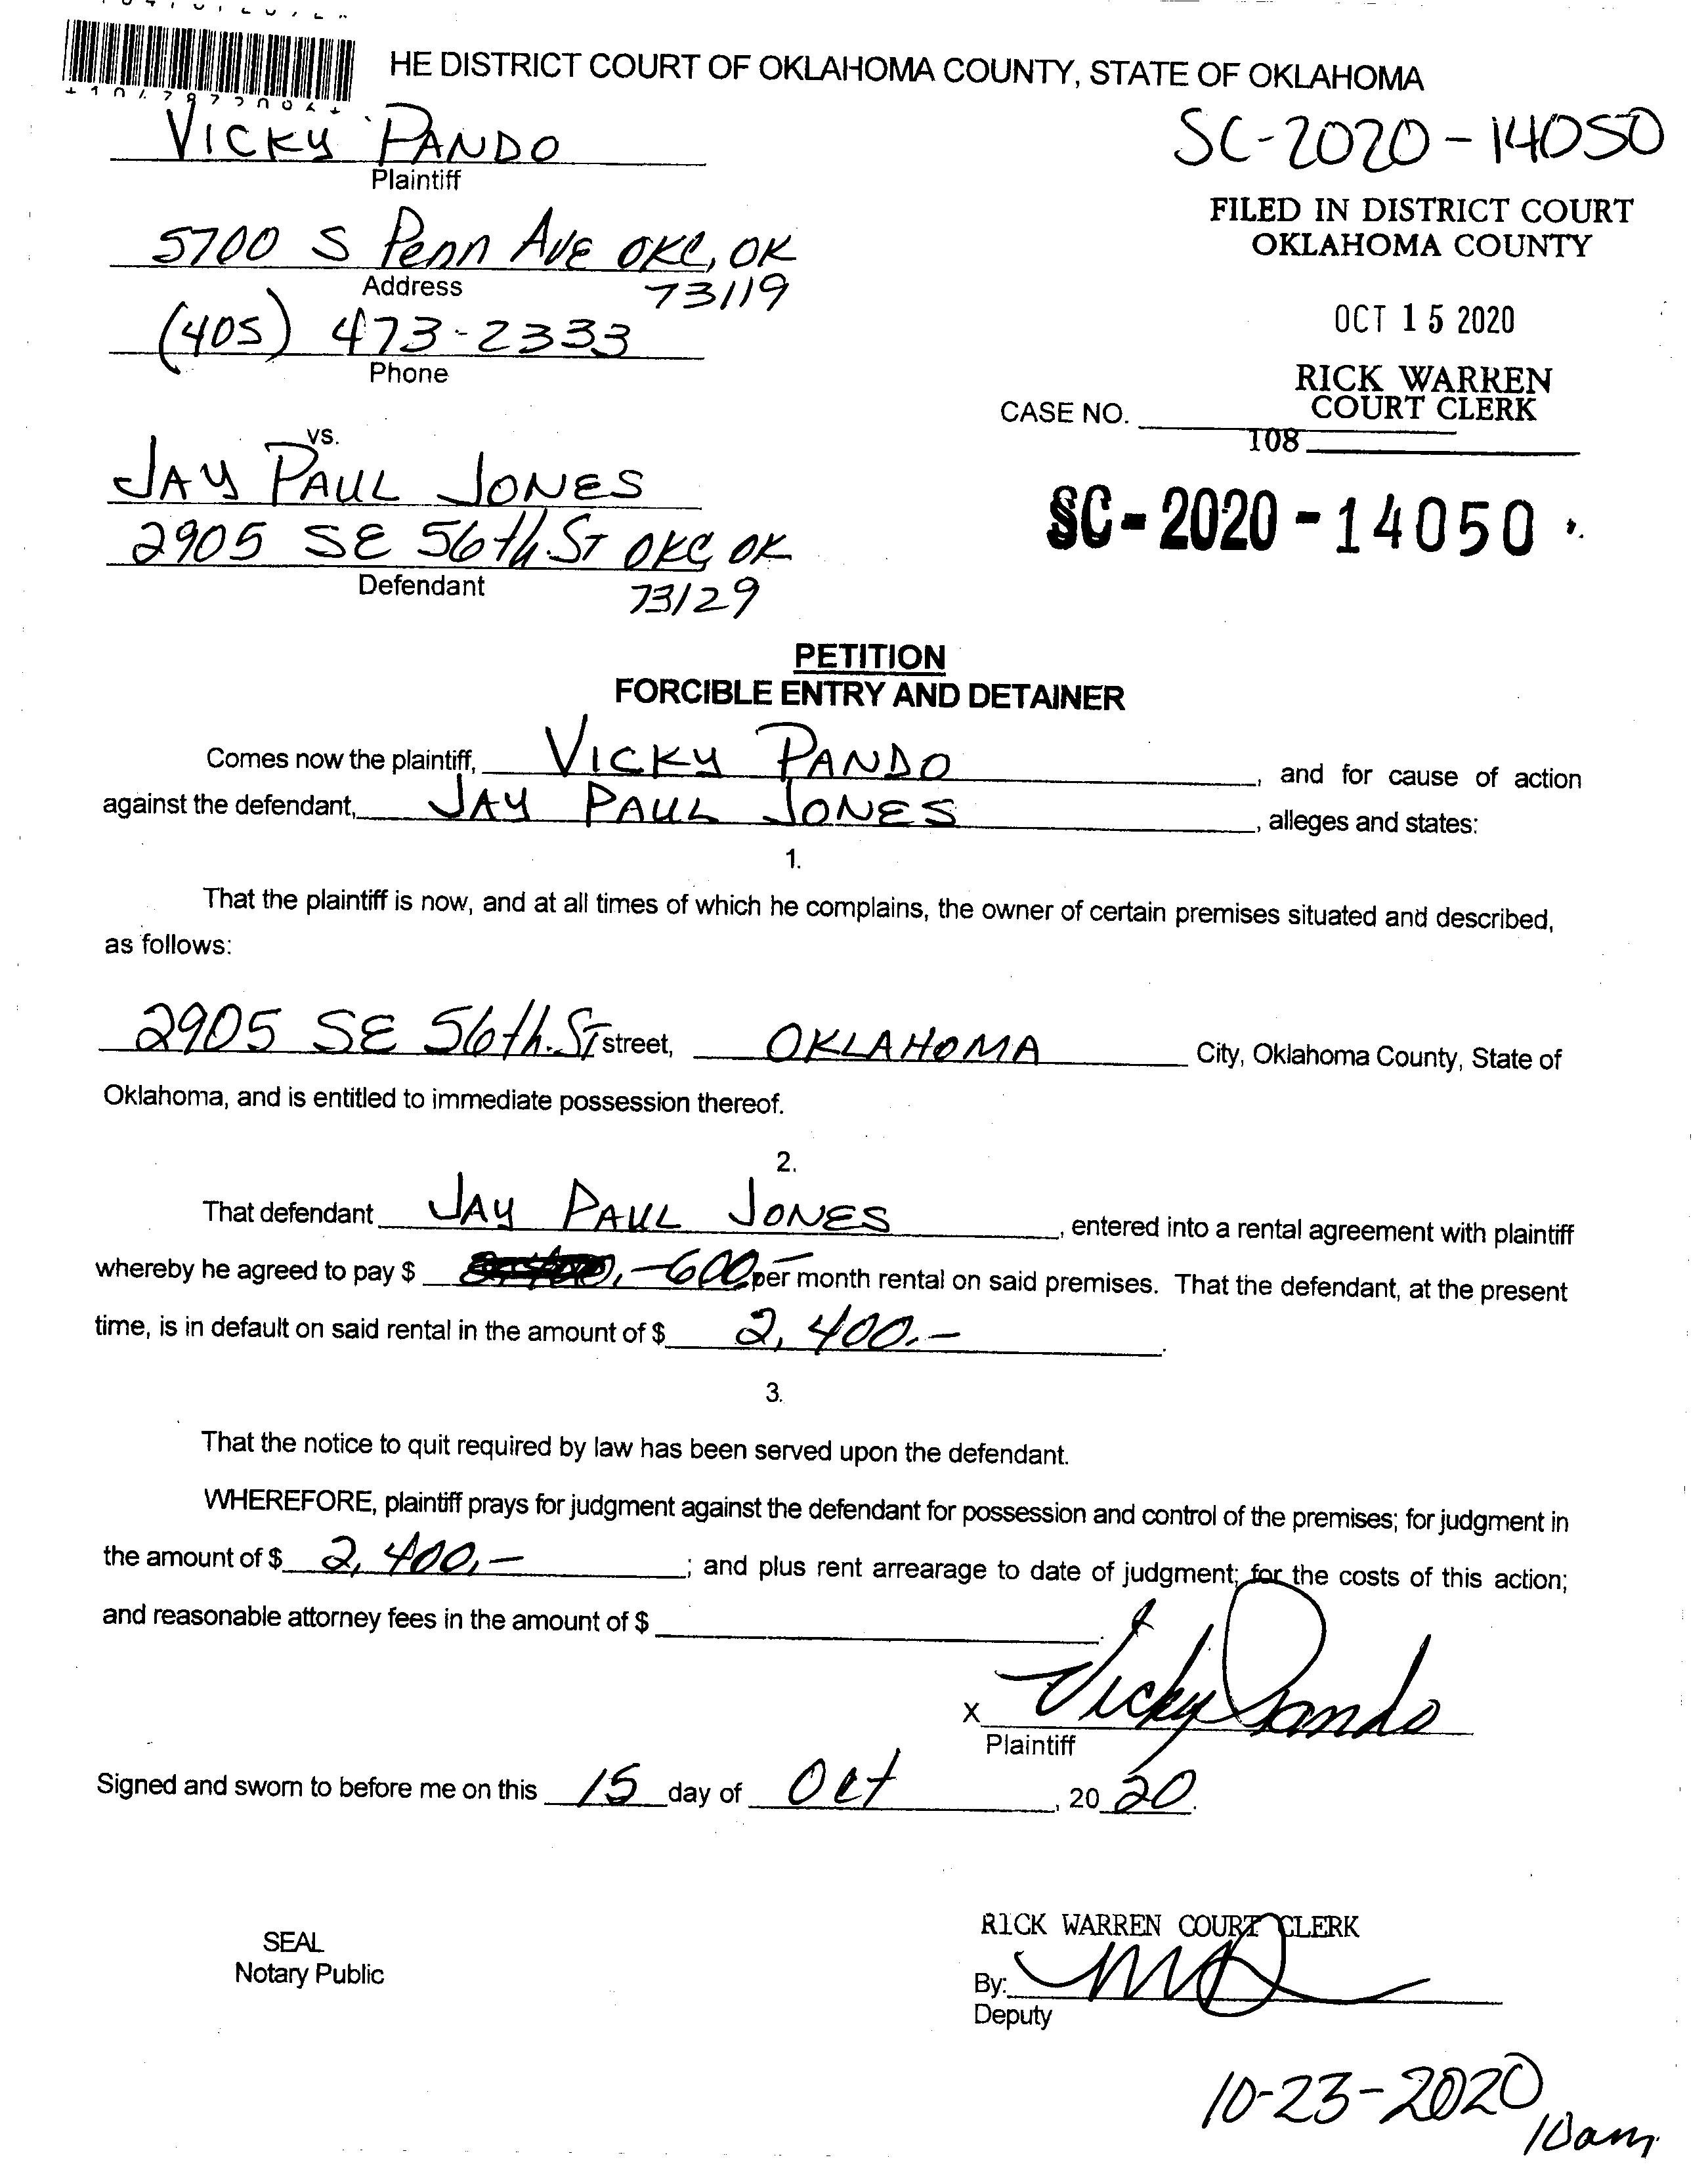 HE DISTRICT COURT OF OKLAHOMA COUNTY, STATE OF OKLAHOMA
VICKY PANDO
Plaintiff
SC-2020-14050
5700 S Penn AVE OKC, OK
Address
73119
FILED IN DISTRICT COURT
OKLAHOMA COUNTY
(405) 473-2333
Phone
OCT 15 2020
RICK WARREN
COURT CLERK
CASE NO.
108
vs.
JAY PAUL JONES
2905 SE 56th. ST OKC OK
Defendant
73129
SC-2020-14050
PETITION
FORCIBLE ENTRY AND DETAINER
Comes now the plaintiff, VICKY PANDO, and for cause of action
against the defendant, JAY PAUL JONES, alleges and states:
1.
That the plaintiff is now, and at all times of which he complains, the owner of certain premises situated and described,
as follows:
2905 SE 56th. ST street, OKLAHOMA City, Oklahoma County, State of
Oklahoma, and is entitled to immediate possession thereof.
2.
That defendant JAY PAUL JONES, entered into a rental agreement with plaintiff
whereby he agreed to pay $ 600.- per month rental on said premises. That the defendant, at the present
time, is in default on said rental in the amount of $ 2,400.-.
3.
That the notice to quit required by law has been served upon the defendant.
WHEREFORE, plaintiff prays for judgment against the defendant for possession and control of the premises; for judgment in
the amount of $ 2,400.-; and plus rent arrearage to date of judgment; for the costs of this action;
and reasonable attorney fees in the amount of $
X Vicky Pando
Plaintiff
Signed and sworn to before me on this 15 day of Oct, 2020.
SEAL
Notary Public
RICK WARREN COURT CLERK
By:
Deputy
10-23-2020
10am